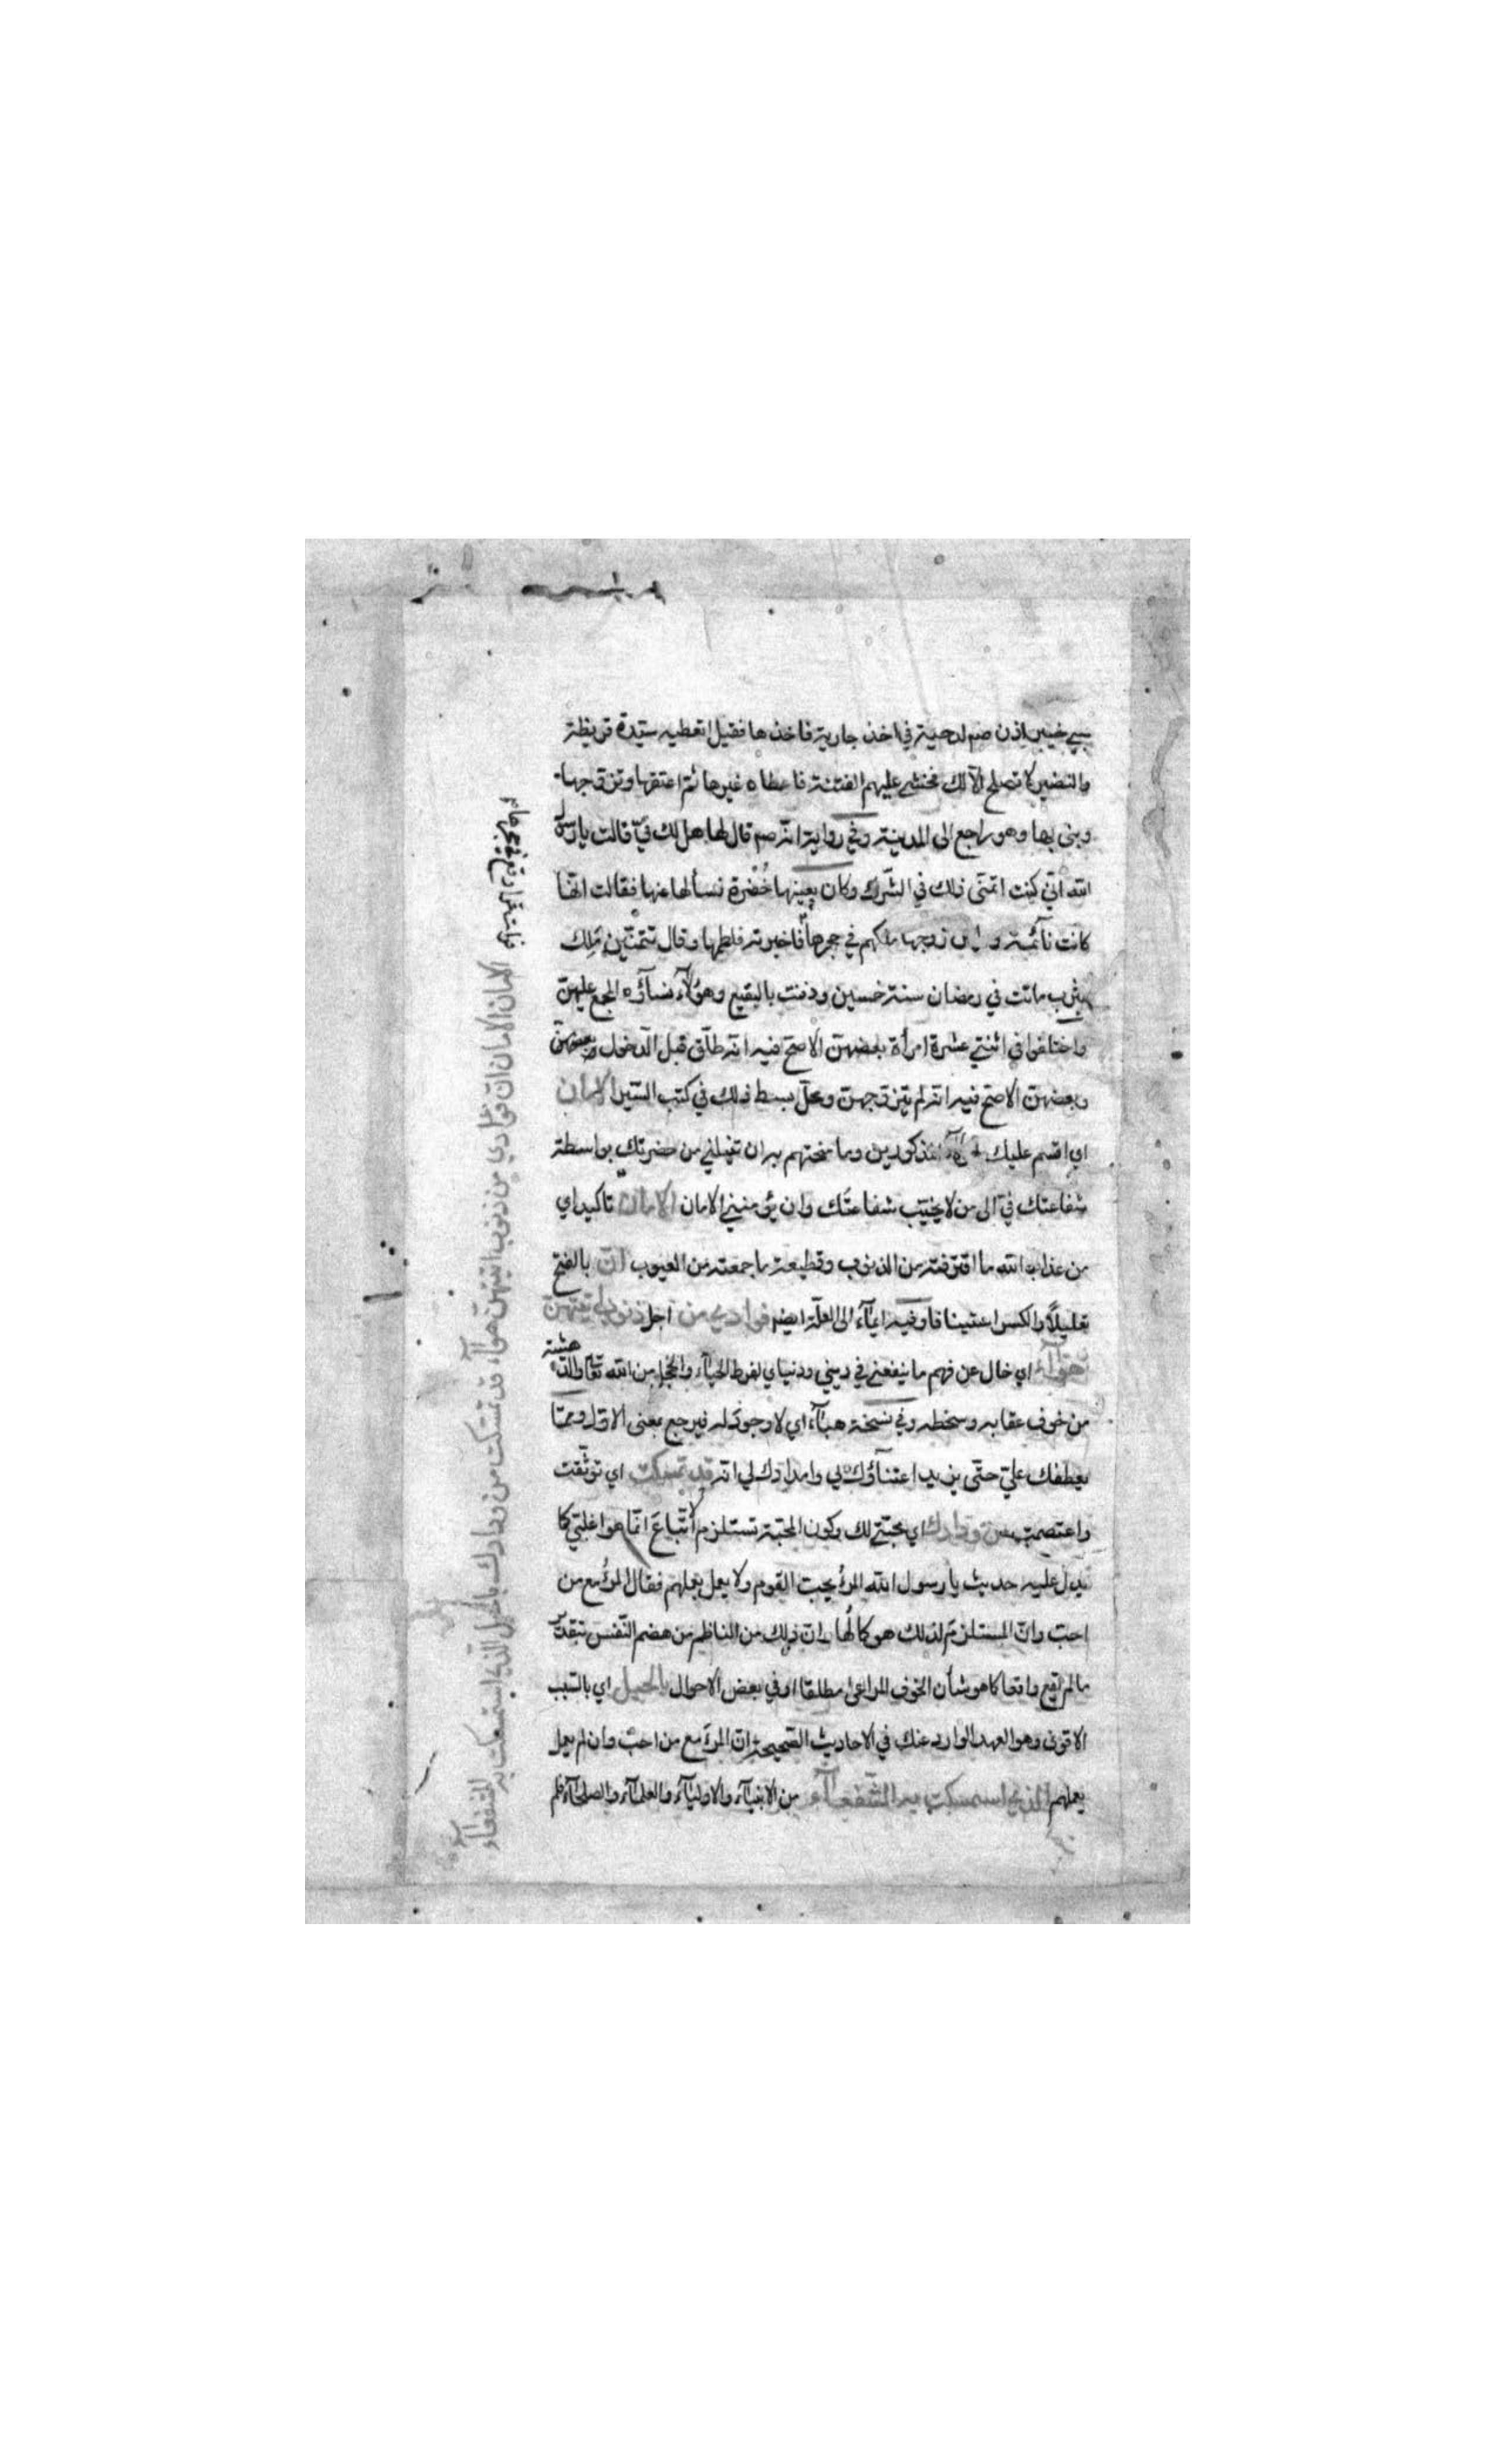 سبي خيبر اذن صم لدحية في اخذ جارية فاخذها فقيل اتعطيه سيّدة قريظة
والنضير لا تصلح الّا لك فخشي عليهم الفتنة فاعطاه غيرها ثم اعتقها وتزوجها
وبنى بها وهو راجع الى المدينة وفي رواية انه صم قال لها هل لك فيّ قالت يا رسول
الله اني كنت اتمنّى ذلك في الشرك وكان بعينها خُضرة فسألها عنها فقالت انها
كانت نائمة وزوجها ملكهم في حجرها فاخبرته فلطمها وقال تتمنّين مَلِك
يثرب ماتت في رمضان سنة خمسين ودفنت بالبقيع وهؤلاء نساؤه المجمع عليهنّ
واختلفوا في اثنتي عشرة امرأة بعضهنّ الاصحّ فيه انه طلّق قبل الدخول وبعضهنّ
وبعضهنّ الاصحّ فيه انه لم يتزوجهنّ ومحلّ بسط ذلك في كتب السّير الامان
اي اقسم عليك المذكورين وما منحتهم به ان تنيلني من حضرتك بواسطة
شفاعتك فيّ الى من لا يخيّب شفاعتك وان يؤمنني الامان الامان تاكيد اي
من عذاب الله ما اقترفته من الذنوب وقطيعة ما جمعته من العيوب انّ بالفتح
تعليلاً والكسر استينافا وفيه ايماء الى العلّة ايضا فوادي من اجل ذنوب اتيتهنّ
هواء اي خال عن فهم ما ينفعني في ديني ودنياي لفرط الحياء والخجل من الله تعالى والدهشة
من خوف عقابه وسخطه وفي نسخة هباء اي لا وجود له فيرجع بمعنى الاول وممّا
يعطفك عليّ حتّى يزيد اعتناؤك لي وامدادك لي انه قد تمسكت اي توثّقت
واعتصمت من ودادك اي محبّتي لك وكون المحبّة تستلزم الاتّباعَ انّما هو اغلبيّ كما
يدل عليه حديث يا رسول الله المرؤ يحب القوم ولا يعمل بعملهم فقال المرؤ مع من
احبّ وانّ المستلزم لذلك هو كمالُها وانّ ذلك من الناظم من هضم النّفس بتقدير
ما لم يقع واقعا كما هو شأن الخوف المراعى مطلقا او في بعض الاحوال بالحبل اي بالسّبب
الاقوى وهو العهد الوارد عنك في الاحاديث الصّحيحة انّ المرءَ مع من احبّ وان لم يعمل
بعملهم الذي استمسكت به الشّفعاء من الانبياء والاولياء والعلماء والصلحاء فلم
الامان الامان انّ فؤادي من ذنوب اتيتهنّ هواء قد تمسّكت من ودادك بالحبل الذي استمسكت به الشفعاء